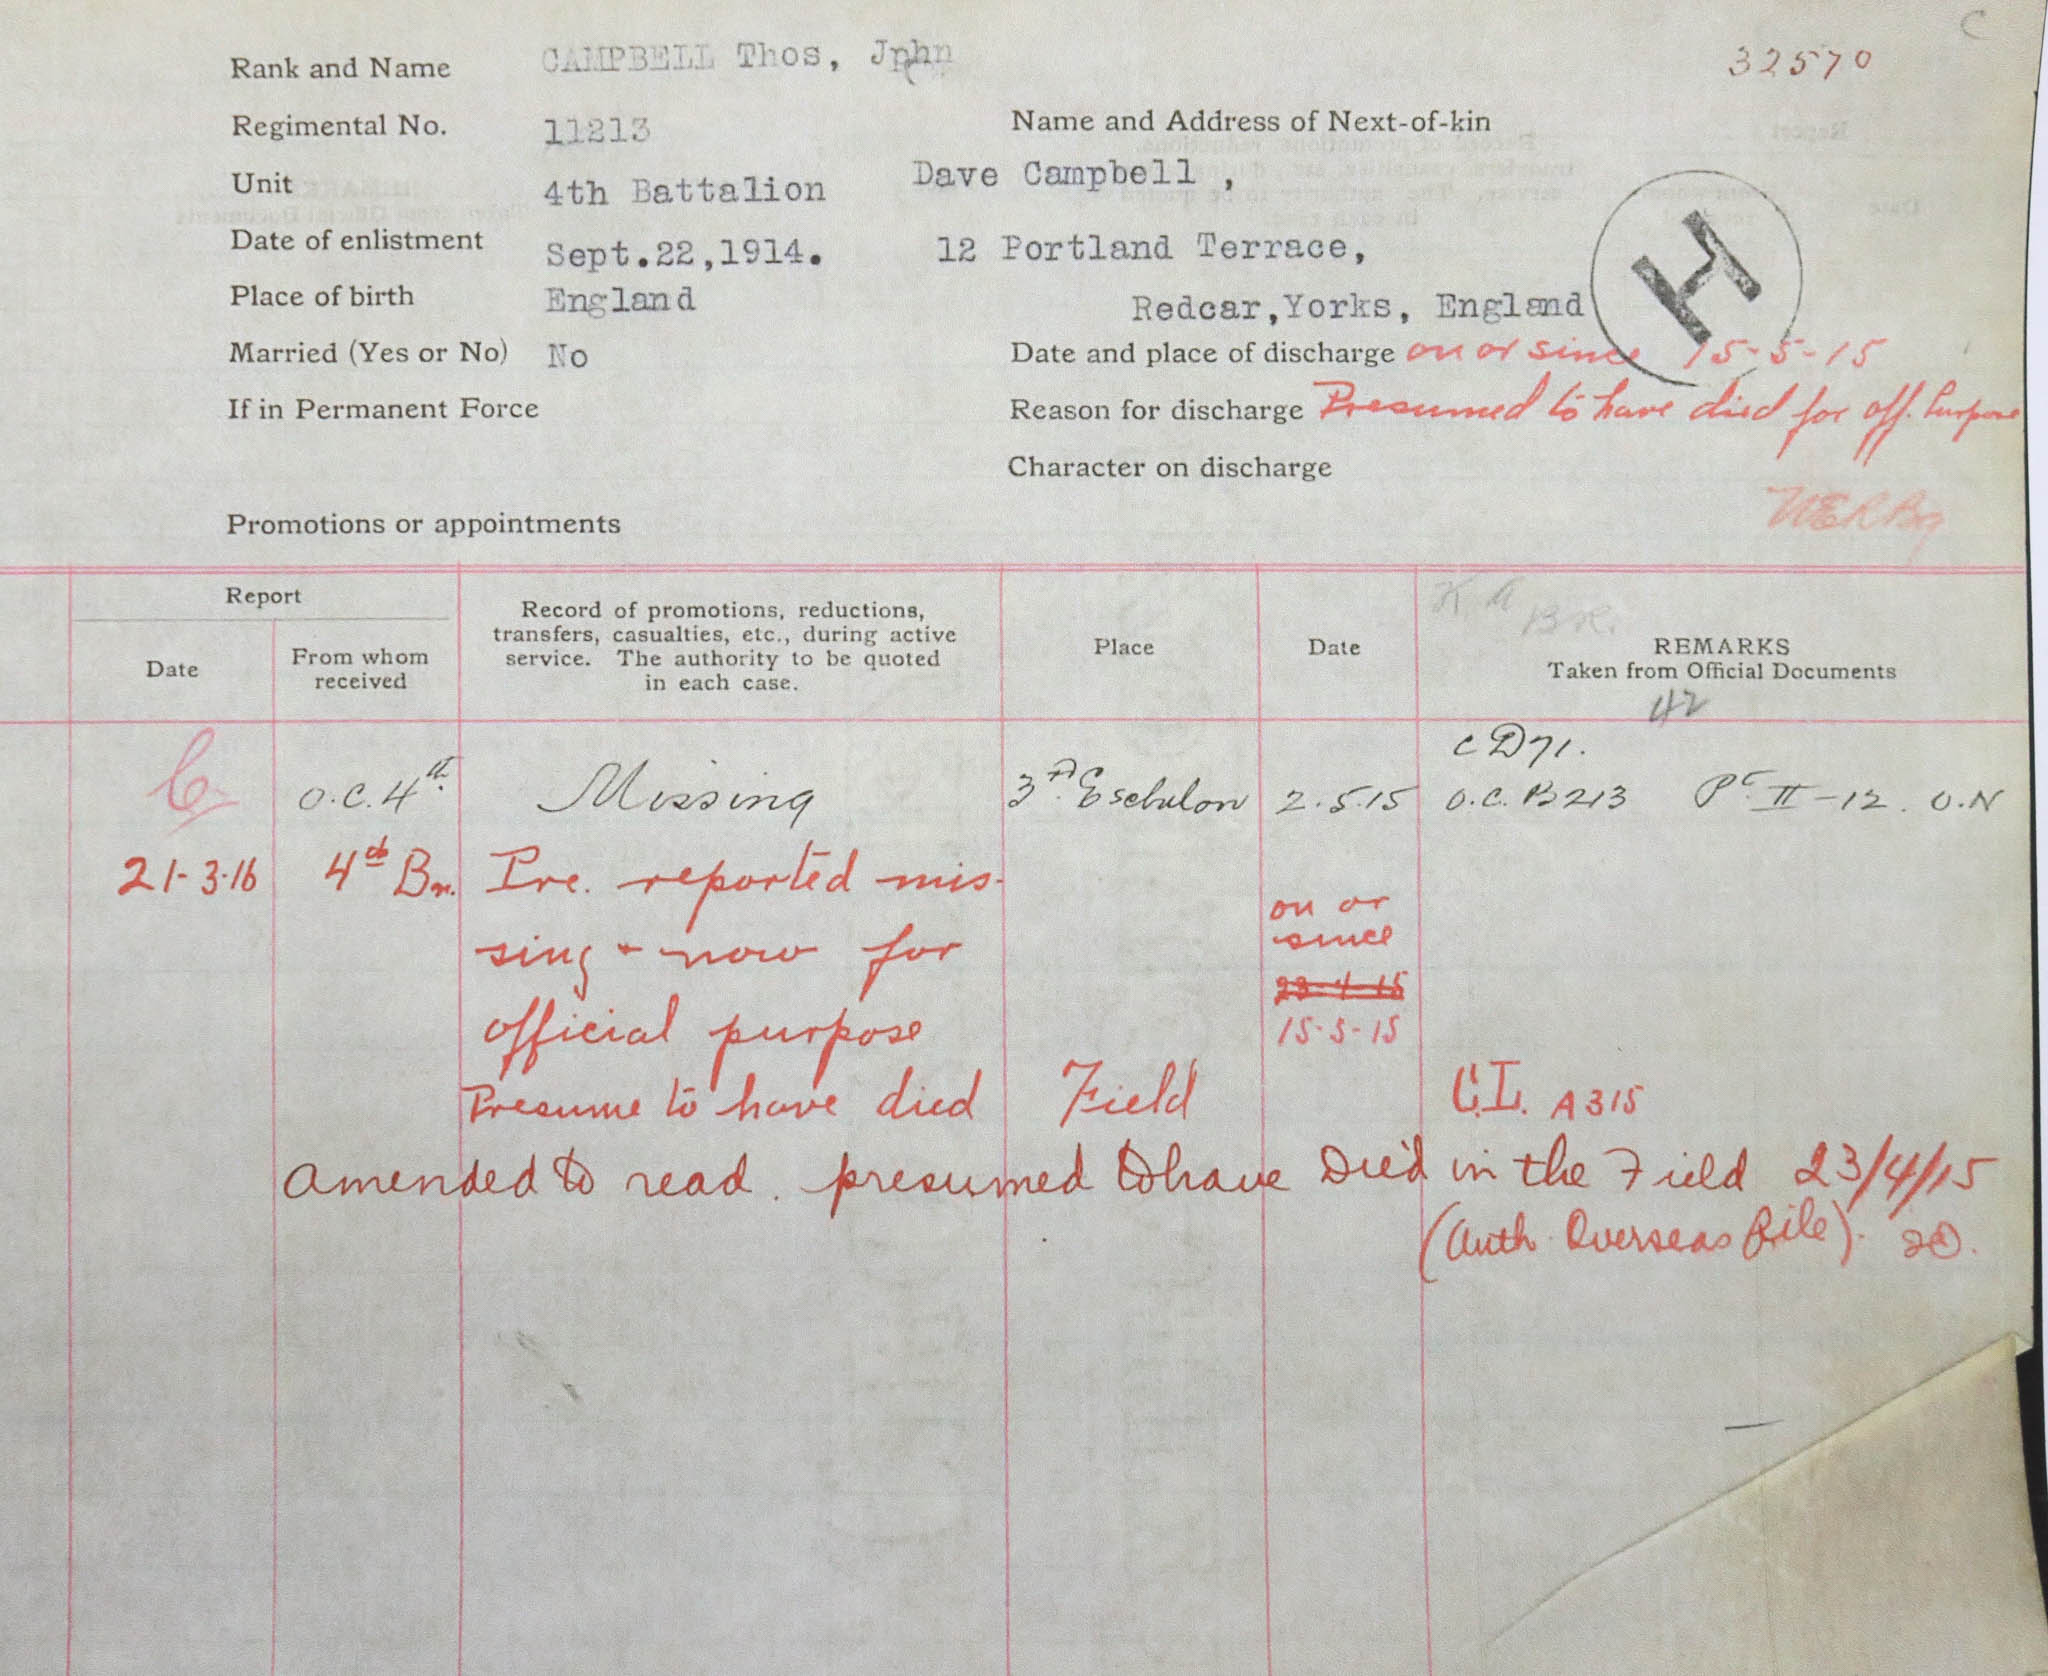 C
32570
Rank and Name CAMPBELL Thos, John
Regimental No. 11213
Unit 4th Battalion
Date of enlistment Sept.22,1914.
Place of birth England
Married (Yes or No) No
If in Permanent Force
Name and Address of Next-of-kin
Dave Campbell ,
12 Portland Terrace,
Redcar,Yorks, England
H
Date and place of discharge on or since 15-5-15
Reason for discharge Presumed to have died for off. Purpose
Character on discharge
Promotions or appointments
Report
Date
From whom
received
Record of promotions, reductions,
transfers, casualties, etc., during active
service. The authority to be quoted
in each case.
Place
Date
REMARKS
Taken from Official Documents
42
C D71.
O.C. 4th. Missing 3rd. Eschelon 2.5.15 O.C. B213 Pt II-12. O.N
21-3-16 4th Bn. Pre. reported mis-
sing + now for
official purpose
Presume to have died Field
on or
since
23-4-15
15-5-15
C.I. A315
amended to read. presumed to have Died in the Field 23/4/15
(Auth Overseas File).